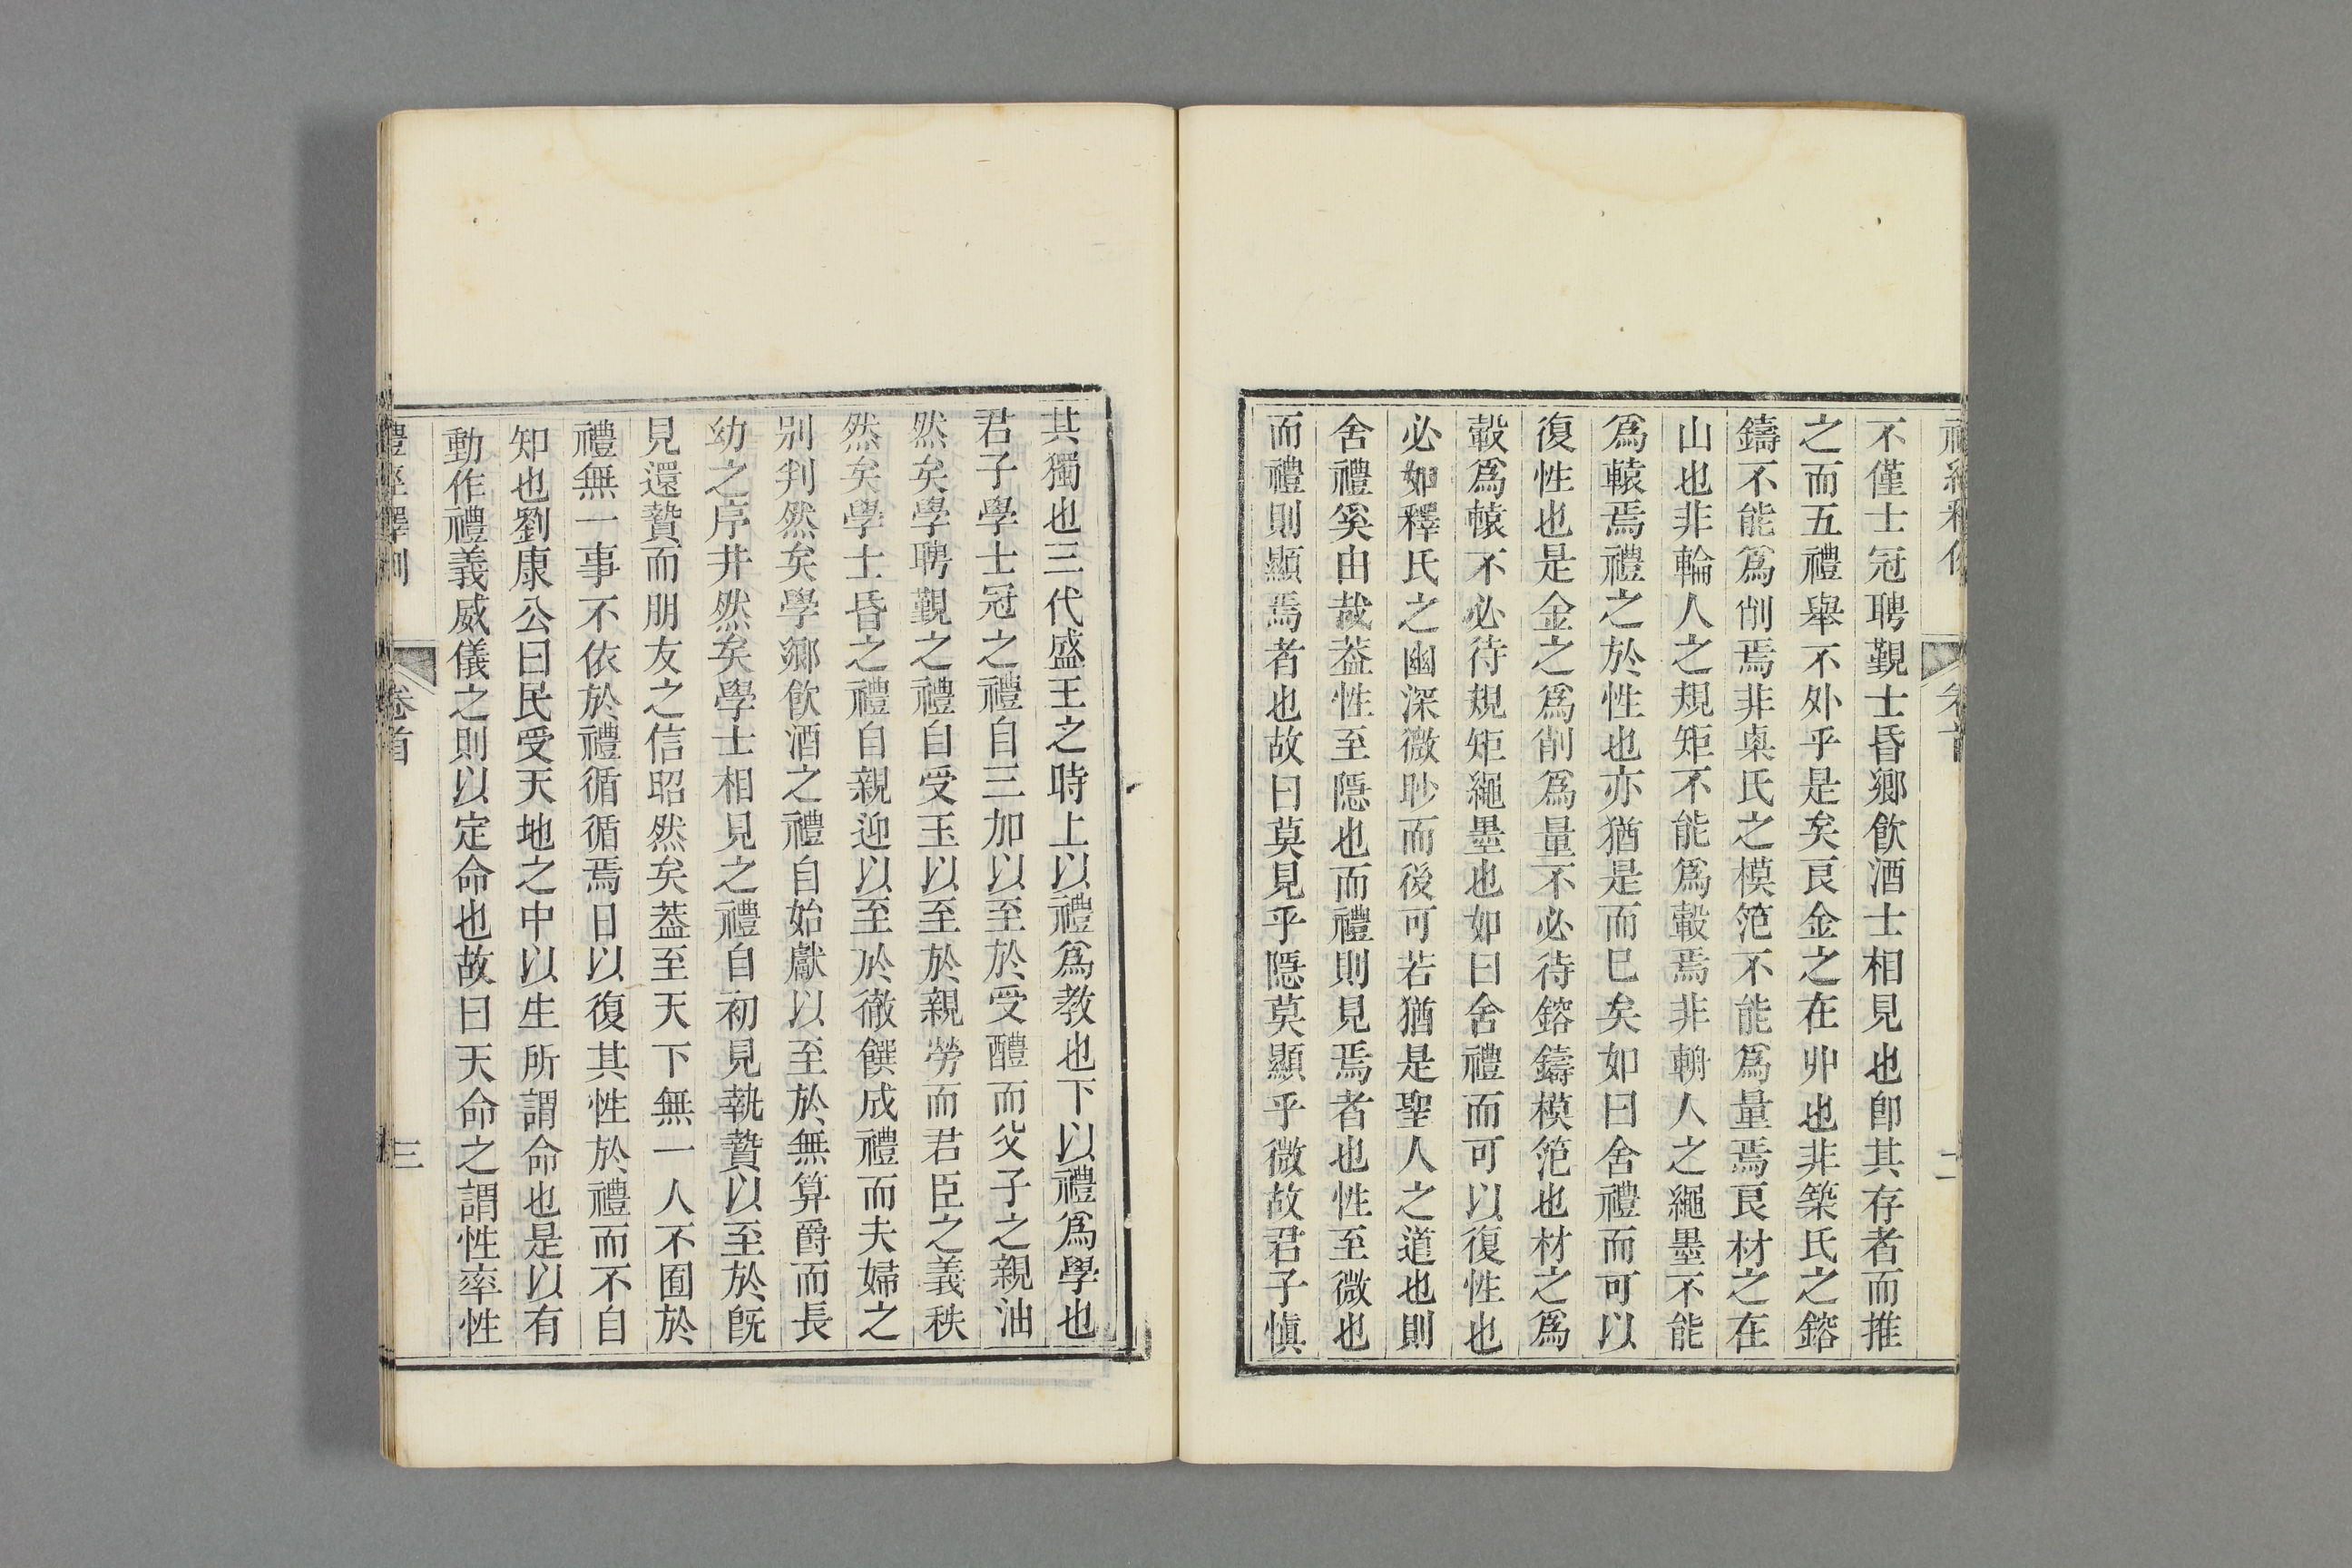 不僅士冠聘覲士昏鄉飲酒士相見也卽其存者而推
之而五禮舉不外乎是矣良金之在丱也非築氏之鎔
鑄不能爲削焉非㮚氏之模笵不能爲量焉良材之在
山也非輪人之規矩不能爲轂焉非輈人之繩墨不能
爲轅焉禮之於性也亦猶是而已矣如曰舍禮而可以
復性也是金之爲削爲量不必待鎔鑄模笵也材之爲
轂爲轅不必待規矩繩墨也如曰舍禮而可以復性也
必如釋氏之幽深微眇而後可若猶是聖人之道也則
舍禮奚由哉葢性至隱也而禮則見焉者也性至微也
而禮則顯焉者也故曰莫見乎隱莫顯乎微故君子愼
其獨也三代盛王之時上以禮爲教也下以禮爲學也
君子學士冠之禮自三加以至於受醴而父子之親油
然矣學聘覲之禮自受玉以至於親勞而君臣之義秩
然矣學士昏之禮自親迎以至於徹饌成禮而夫婦之
别判然矣學鄉飲酒之禮自始獻以至於無算爵而長
幼之序井然矣學士相見之禮自初見執贄以至於旣
見還贄而朋友之信昭然矣葢至天下無一人不囿於
禮無一事不依於禮循循焉日以復其性於禮而不自
知也劉康公曰民受天地之中以生所謂命也是以有
動作禮義威儀之則以定命也故曰天命之謂性率性
禮經釋例 卷首 三